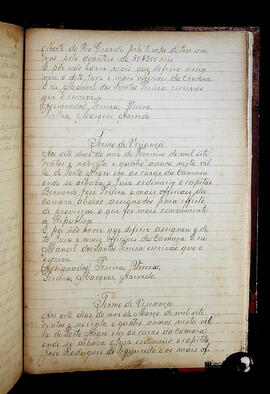 Norte do Rio Grande pelo tempo de tres an
nos pelo
E por não haver mais que deferir assig
nou o dito Juiz e mais officiaes da Camara
E eu Manoel dos Santos Pereira escrivão
que o escrevi
Assignados, Pereira, Vieira,
Pereira, Marques, Azevedo
Termo de Vereança
Aos oito dias do mez de Fevereiro de mil sete
centos e noventa e quatro annos nesta vil
la de Porto Alegre em as cazas da Camara
onde se achava o Juiz ordinario o capitão
Bernardo José Pereira e mais officiaes da
camara abaixo assignados para effeito
de proverem o que for mais conveniente
a Republica
E por não haver que deferir assignou o di
to Juiz e mais officiaes da Camara E eu
Manoel dos Santos Pereira escrivão que o
escrevi
Assignados Pereira, Vieira,
Pereira, Marques, Azevedo
Termo de Vereança
Aos oito dias do mez de Março de mil sete
centos e noventa e quatro annos nesta vil
la de Porto Alegre em as cazas da Camara
onde se achava o Juiz ordinario o capitão
José Rodrigues de Figueiredo e os mais of